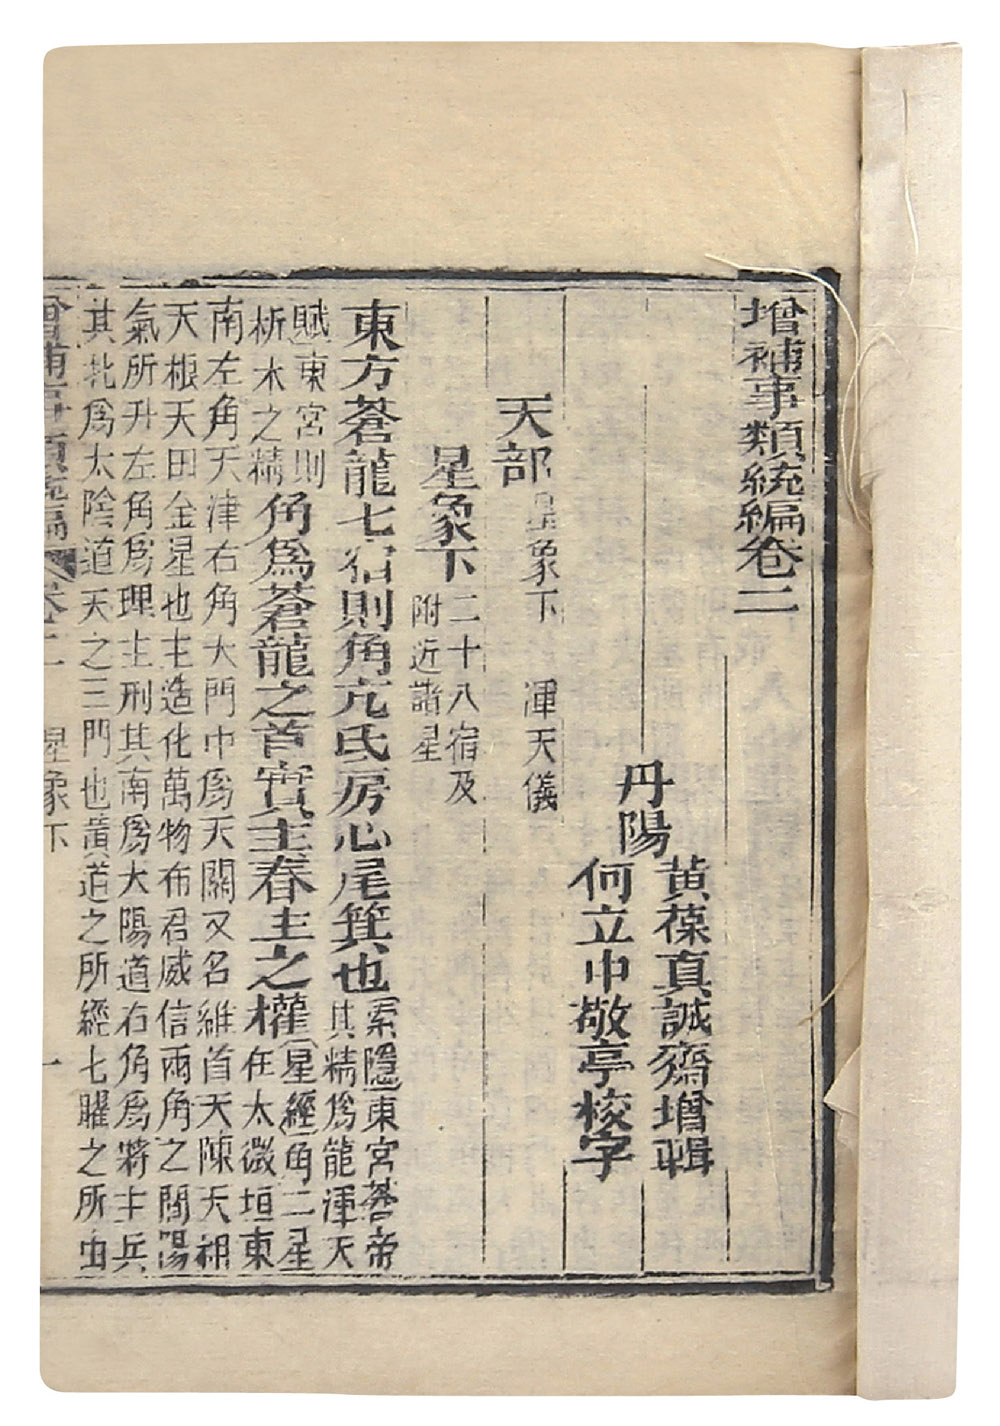 增補事類統編卷二
丹陽
黃葆真誠齋增輯
何立中敬亭校字
天部 星象下 渾天儀
星象下 二十八宿及
附近諸星
東方蒼龍七宿則角亢氐房心尾箕也 索隱東宮蒼帝
其精爲龍渾天
賦東宮則
析木之精
角爲蒼龍之首實主春生之權 星經角二星
在太微垣東
南左角天津右角大門中爲天關又名維首天陳天祖
天根天田金星也主造化萬物布君威信兩角之間陽
氣所升左角爲理主刑其南爲太陽道右角爲將主兵
其北爲太陰道天之三門也黃道之所經七曜之所由
增補事類統編 卷二 星象下 一